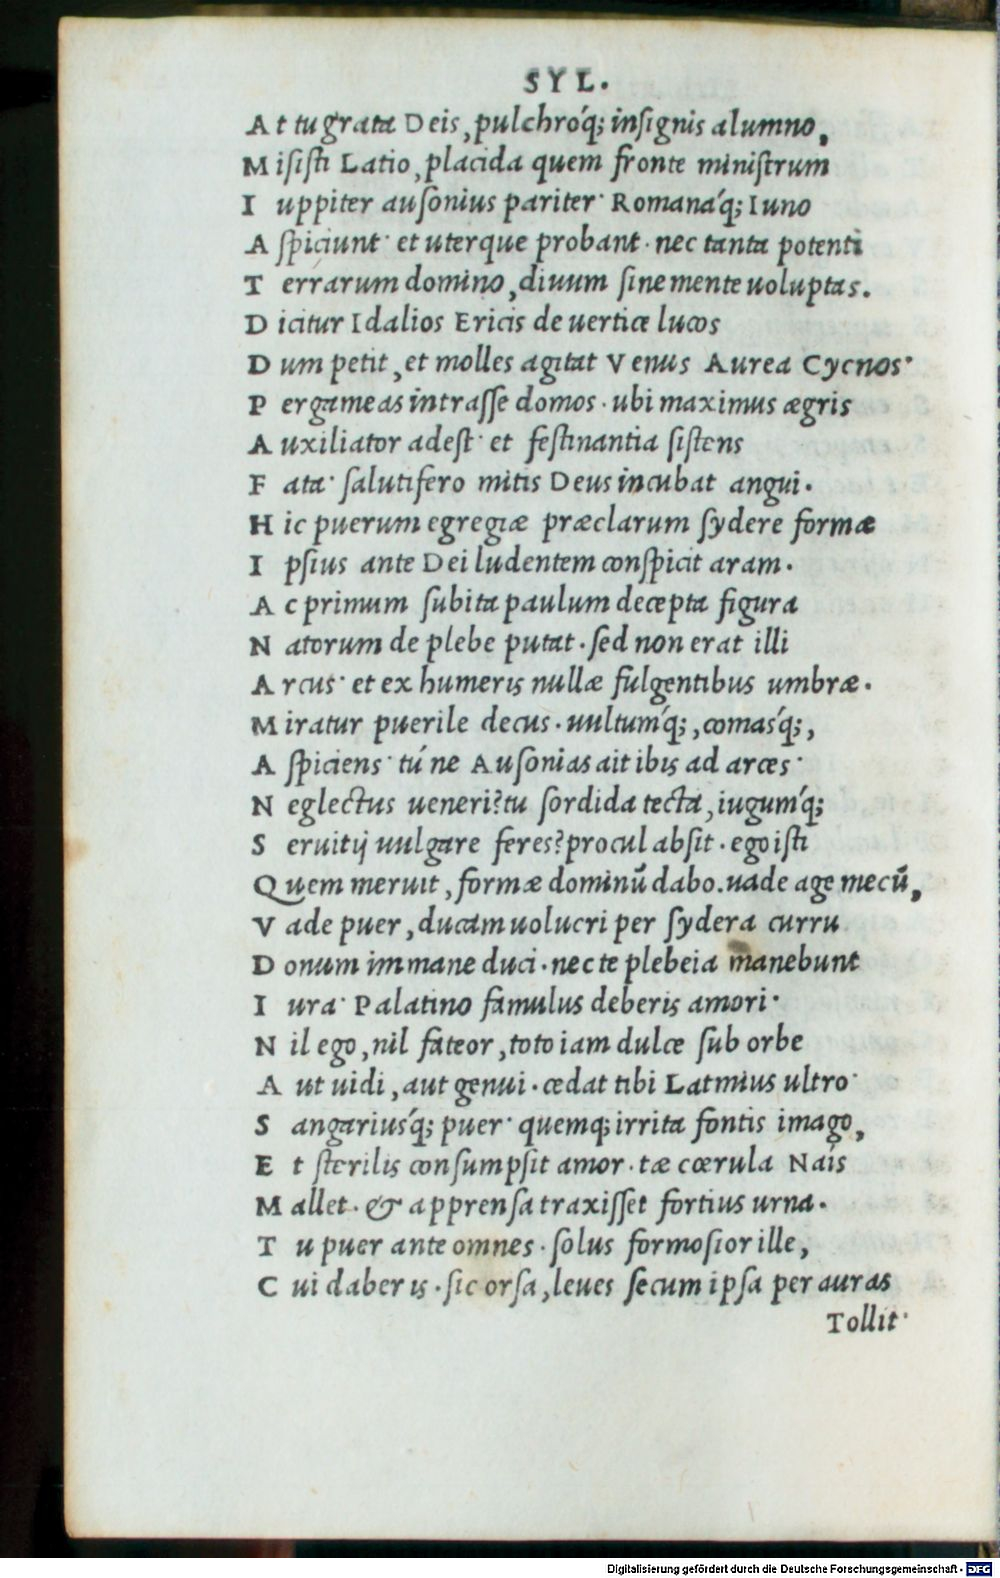 SYL.
At tu grata Deis, pulchróq; insignis alumno,
Misisti Latio, placida quem fronte ministrum
Iuppiter ausonius pariter· Romanáq; Iuno
Aspiciunt· et uterque probant· nec tanta potenti
Terrarum domino, diuum sine mente uoluptas.
Dicitur Idalios Ericis de uertice lucos
Dum petit, et molles agitat Venus Aurea Cycnos·
Pergameas intrasse domos· ubi maximus ægris
Auxiliator adest· et festinantia sistens
Fata· salutifero mitis Deus incubat angui.
Hic puerum egregiæ præclarum sydere formæ
Ipsius ante Dei ludentem conspicit aram.
Ac primum subita paulum decepta figura
Natorum de plebe putat· sed non erat illi
Arcus· et ex humeris nullæ fulgentibus umbræ.
Miratur puerile decus· uultum'q;, comas'q;,
Aspiciens· tú ne Ausonias ait ibis ad arces·
Neglectus ueneri? tu sordida tecta, iugum'q;
Seruitij uulgare feres? procul absit· ego isti
Quem meruit, formæ dominū dabo. uade age mecū,
Vade puer, ducam uolucri per sydera curru
Donum immane duci· nec te plebeia manebunt
Iura· Palatino famulus deberis amori·
Nil ego, nil fateor, toto iam dulce sub orbe
Aut uidi, aut genui· cedat tibi Latmius ultro·
Sangarius'q; puer· quemq; irrita fontis imago,
Et sterilis consumpsit amor· te cœrula Naís
Mallet· & apprensa traxisset fortius urna.
Tu puer ante omnes· solus formosior ille,
Cui daberis· sic orsa, leues secum ipsa per auras
Tollit·
Digitalisierung gefördert durch die Deutsche Forschungsgemeinschaft - DFG